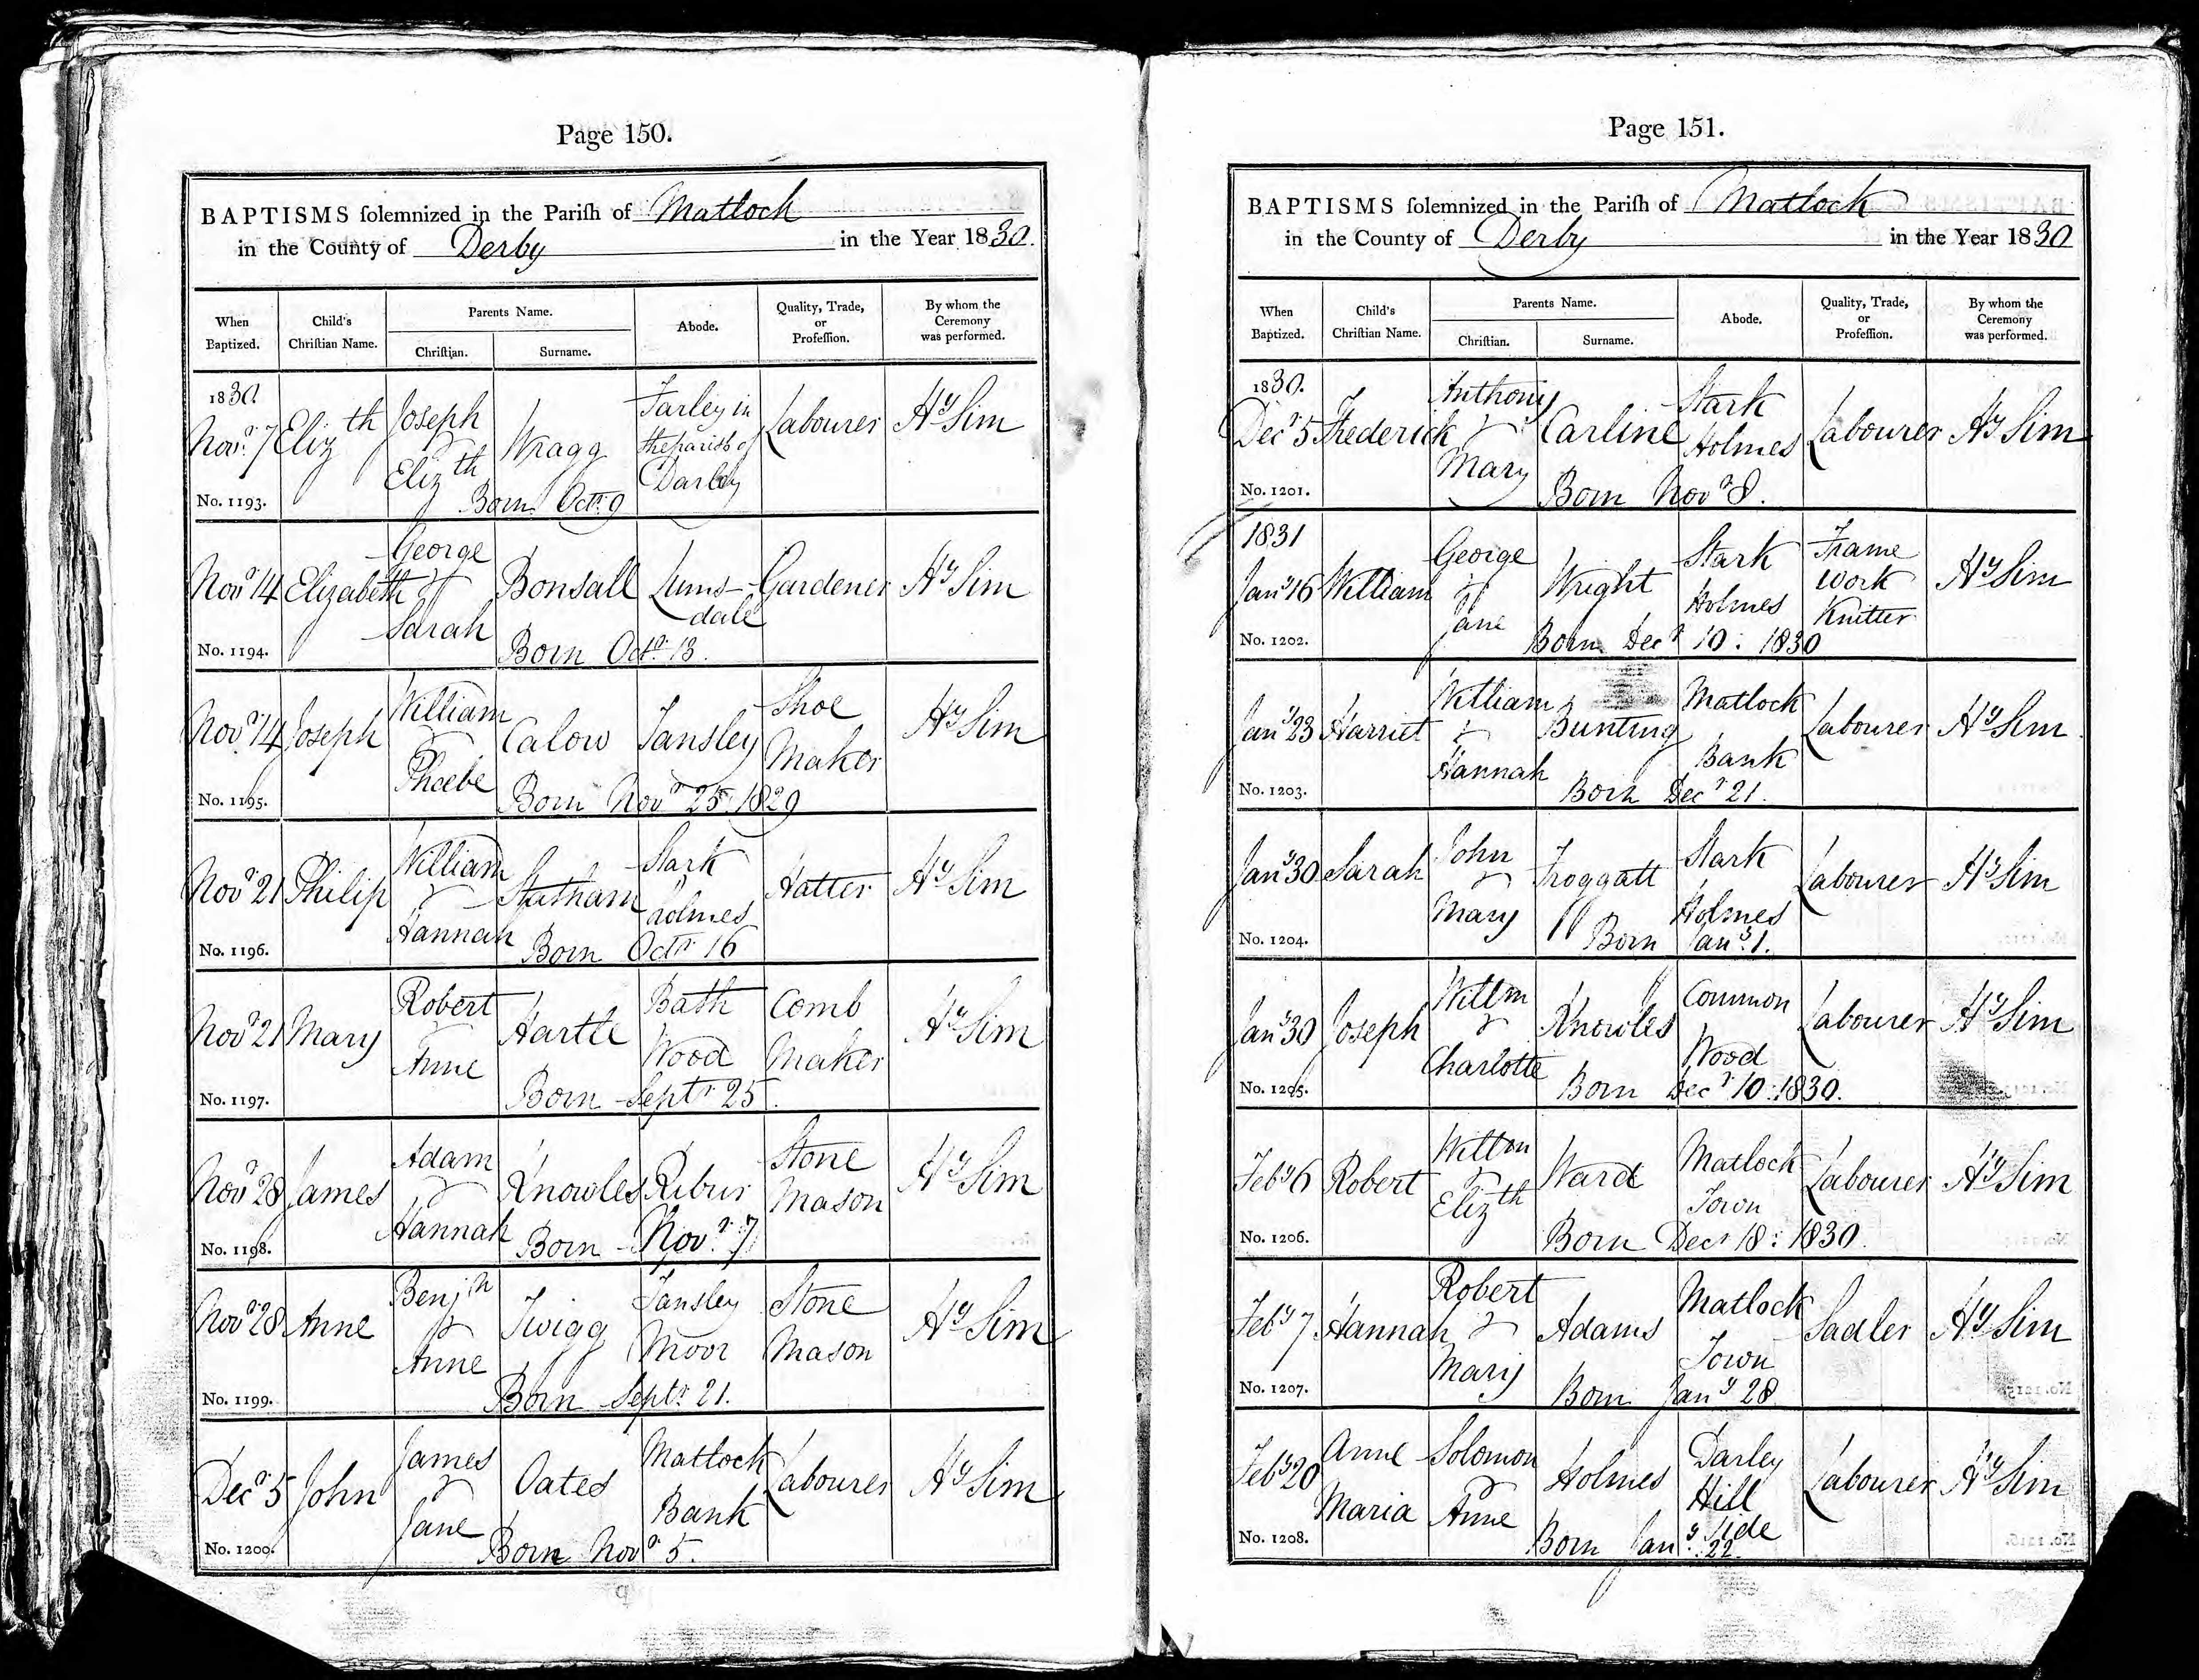 Page 150.
BAPTISMS solemnized in the Parish of Matlock
in the County of Derby in the Year 1830.
When Baptized. Child's Christian Name. Parents Name. Christian. Surname. Abode. Quality, Trade, or Profession. By whom the Ceremony was performed.
1830.
Novr. 7 Elizth Joseph & Elizth Wragg Farley in the parish of Darley Labourer Hy Sim
No. 1193. Born Octr. 9
Novr 14 Elizabeth George & Sarah Bonsall Lums-dale Gardener Hy Sim
No. 1194. Born Octr. 13.
Novr. 14 Joseph William & Phoebe Calow Tansley Shoe Maker Hy Sim
No. 1195. Born Novr 25. 1829
Novr 21 Philip William & Hannah Statham Stark holmes Hatter Hy Sim
No. 1196. Born Octr 16
Novr 21 Mary Robert & Anne Hartle Bath Wood Comb Maker Hy Sim
No. 1197. Born Septr 25.
Novr 28 James Adam & Hannah Knowles Riber Stone Mason Hy Sim
No. 1198. Born Novr. 7
Novr 28 Anne Benjn & Anne Twigg Tansley Moor Stone Mason Hy Sim
No. 1199. Born Septr. 21.
Decr 5 John James & Jane Oates Matlock Bank Labourer Hy Sim
No. 1200. Born Novr 5.
Page 151.
BAPTISMS solemnized in the Parish of Matlock
in the County of Derby in the Year 1830
When Baptized. Child's Christian Name. Parents Name. Christian. Surname. Abode. Quality, Trade, or Profession. By whom the Ceremony was performed.
1830.
Decr 5 Frederick Anthony & Mary Carline Stark Holmes Labourer Hy Sim
No. 1201. Born Novr 8.
1831
Jany 16 William George & Jane Wright Stark Holmes Frame Work Knitter Hy Sim
No. 1202. Born Decr 10: 1830
Jany 23 Harriet William & Hannah Bunting Matlock Bank Labourer Hy Sim
No. 1203. Born Decr 21.
Jany 30 Sarah John & Mary Froggatt Stark Holmes Labourer Hy Sim
No. 1204. Born Jany. 1.
Jany 30 Joseph Willm & Charlotte Knowles Common Wood Labourer Hy Sim
No. 1205. Born Decr 10: 1830.
Feby 6 Robert Willm & Elizth Ward Matlock Town Labourer Hy Sim
No. 1206. Born Decr 18: 1830.
Feby 7. Hannah Robert & Mary Adams Matlock Town Sadler Hy Sim
No. 1207. Born Jany 28
Feby 20 Anne Maria Solomon Anne Holmes Darley Hill Side Labourer Hy Sim
No. 1208. Born Jany. 22.